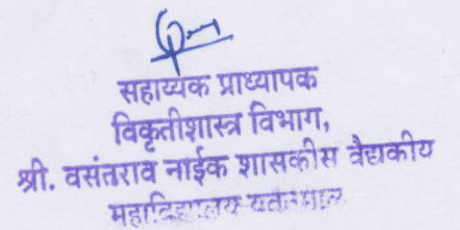 सहाय्यक प्राध्यापक
विकृतीशास्त्र विभाग,
श्री. वसंतराव नाईक शासकीस वैद्यकीय
महाविद्यालय यवतमाळ